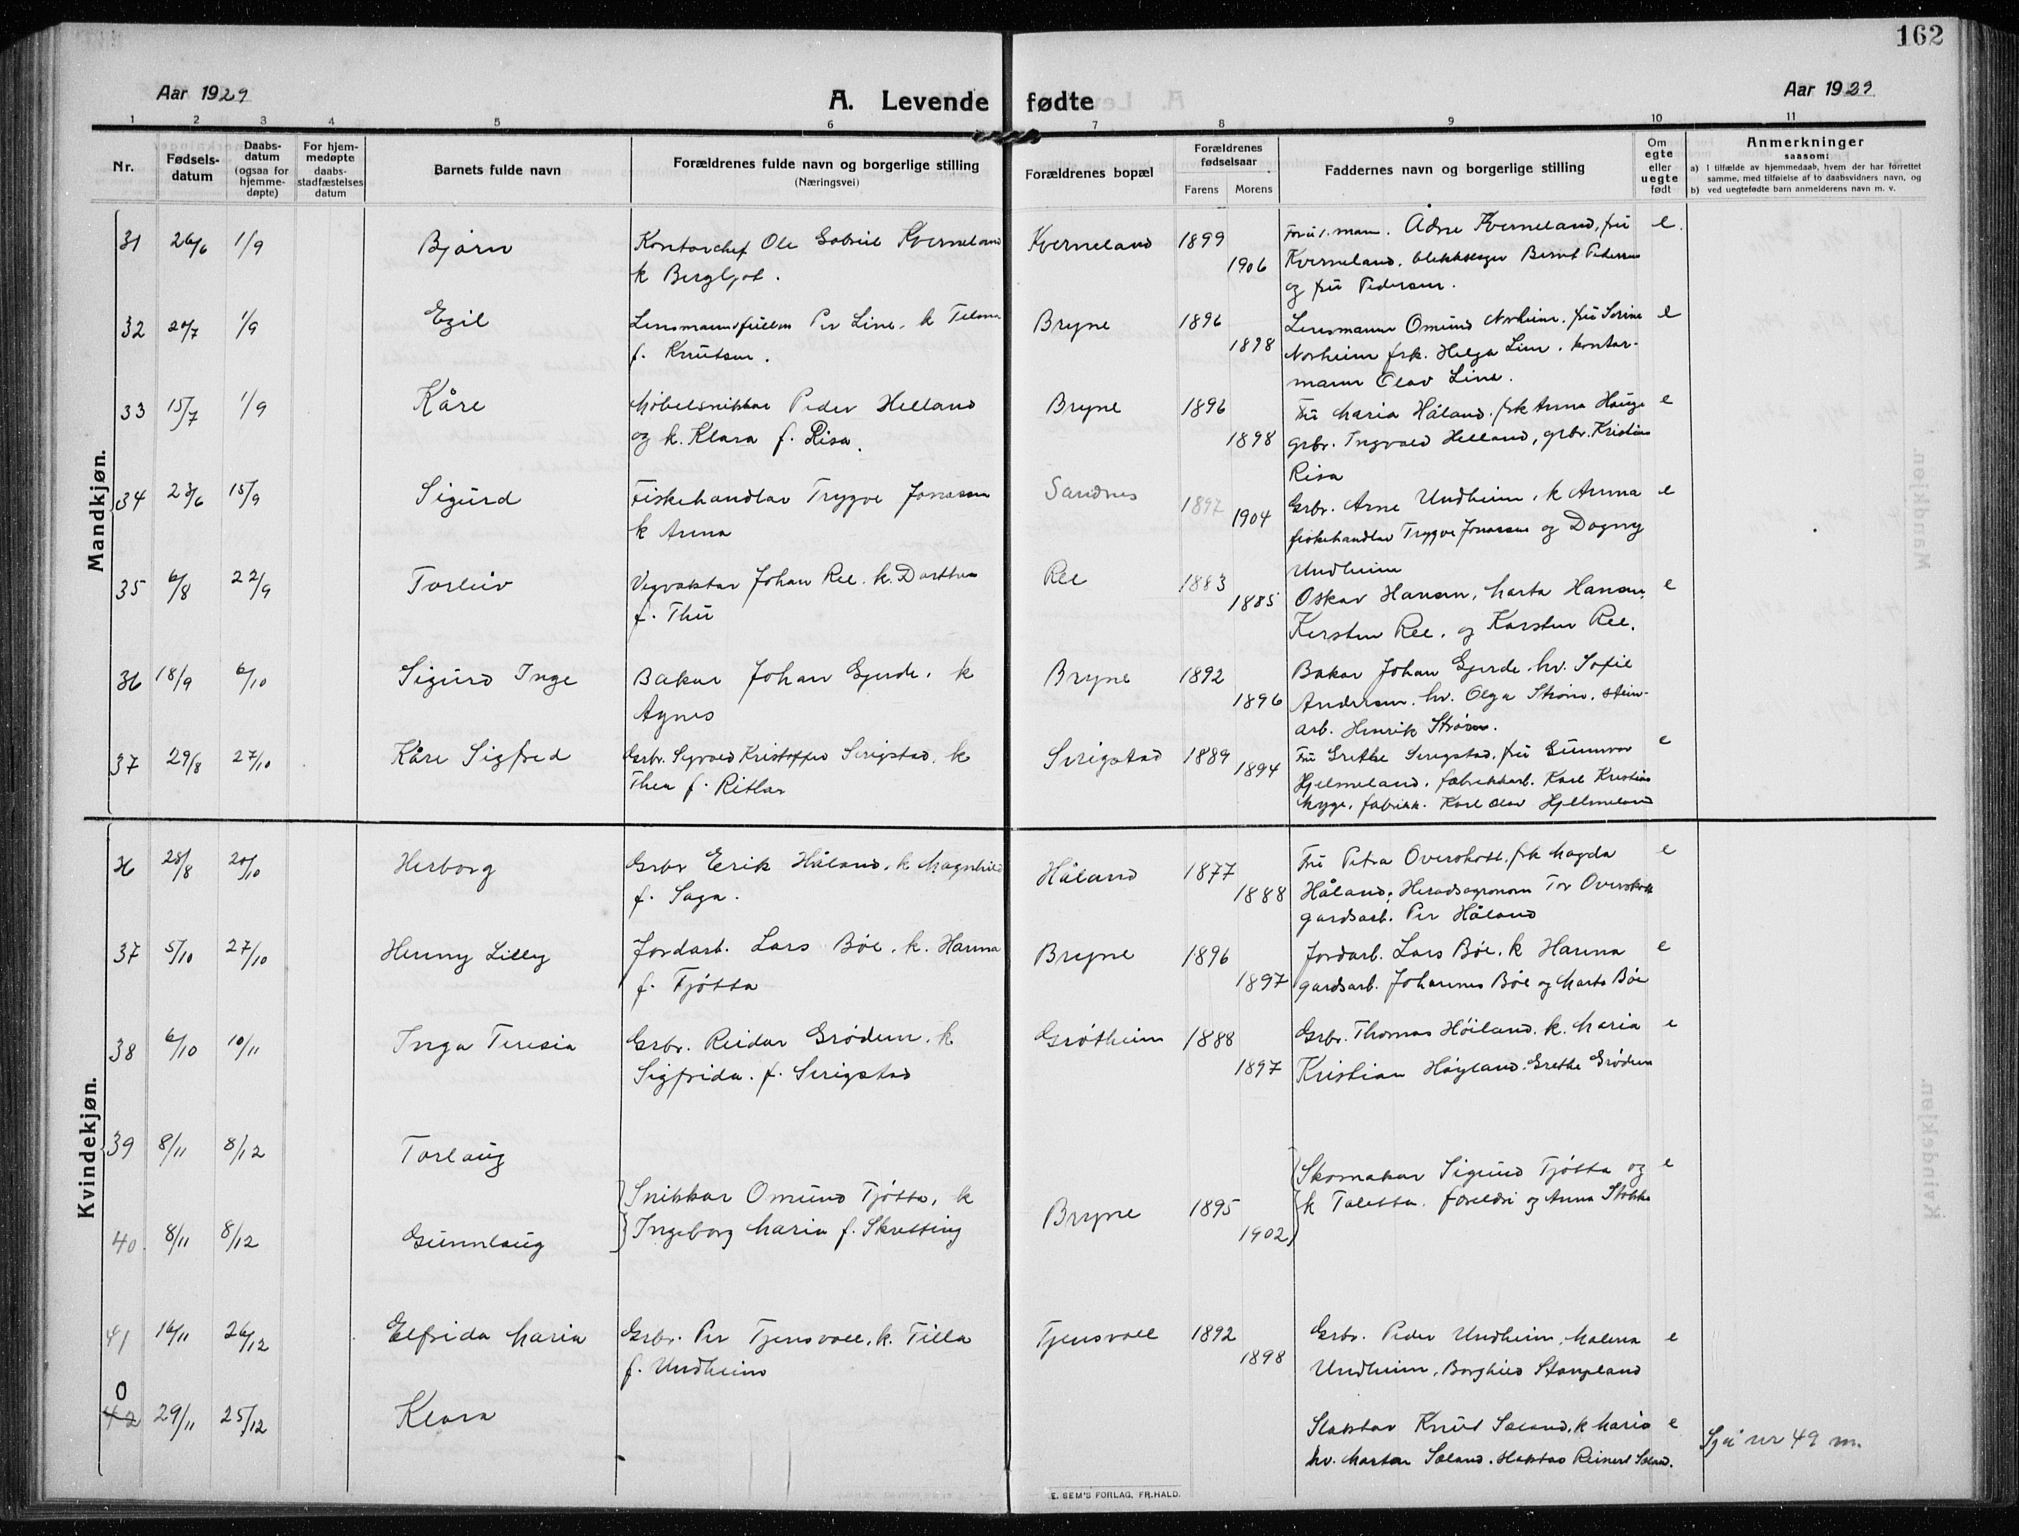 162
Aar 1929
A. Levende fødte
Aar 1929
1 2 3 4 5 6 7 8 9 10 11
Nr.
Fødsels-
datum
Daabs-
datum
(ogsaa for
hjemme-
døpte)
For hjem-
medøpte
daabs-
stadfæstelses
datum
Barnets fulde navn
Forældrenes fulde navn og borgerlige stilling
(Næringsvei)
Forældrenes bopæl
Forældrenes
fødselsaar
Farens Morens
Faddernes navn og borgerlige stilling
Om
egte
eller
uegte
født
Anmerkninger
saasom:
a) I tilfælde av hjemmedaab, hvem der har forrettet
samme, med tilføielse af to daabsvidners navn, og
b) ved uegtefødte barn anmelderens navn m. v.
Mandkjøn.
31 26/6 1/9 Bjørn Kontorchef Ole Gabriel Kverneland Kverneland 1899 Foru. mann. Ådne Kverneland, fru e.
k Bergljot. 1906 Kverneland. blikkslager Bernt Pedersen
og fru Pedersen.
32 20/7 1/9 Egil Lensmannsfullm Per Line. k Telma Bryne 1896 Lensmann Omund Norheim. fru Sorine e
f. Knutsen. 1898 Norheim frk. Helga Line. kontor-
mann Olav Line.
33 15/7 1/9 Kåre Møbelsnikkar Peder Helland Bryne 1896 Fru Maria Håland. frk Anna Hauge e
og k. Klara f. Risa. 1898 grbr. Ingvald Helland, grbr. Kristian
Risa
34 23/6 15/9 Sigurd Fiskehandlar Trygve Jonassen Sandnes 1897 Grbr. Arne Undheim. k Anna e
k Anna 1904 fiskehandlar Trygve Jonassen og Dagny
Undheim
35 6/8 22/9 Torleiv Vegvaktar Johan Ree. k. Dorthea Ree 1883 Oskar Hansen, Marta Hansen, e
f. Thu 1885 Kersten Ree. og Karsten Ree.
36 18/9 6/10 Sigurd Inge Bakar Johan Gjerde. k Bryne 1892 Bakar Johan Gjerde. hv. Sofie
Agnes 1896 Andersen. hv. Olga Strøm. stein-
arb. Henrik Strøm.
37 29/8 27/10 Kåre Sigfred Grbr. Sigvald Kristoffer Serigstad. k Serigstad 1889 Fru Grethe Serigstad. fru Gunnvor e
Thea f. Retlar 1894 Hjelmeland. fabrikkarb. Karl Kristian
Myge. fabrikk. Karl Olav Hjelmeland
Kvindekjøn.
36 28/8 20/10 Herborg Grbr Erik Håland. k Magnhild Håland 1877 Fru Petra Overskott. frk Magda e
f. Saga. 1888 Håland; Heradsagronom Tor Overskott
gardsarb. Per Håland
37 5/10 27/10 Henny Lilly Jordarb. Lars Bøe. k. Hanna Bryne 1896 Jordarb. Lars Bøe. k Hanna e
f. Tjøtta 1897 gardsarb. Johannes Bøe og Marta Bøe
38 6/10 10/11 Inga Teresia Grbr. Reidar Grødem. k Grøtheim 1888 Grbr. Thomas Høiland. k. Maria e
Sigfrida. f. Serigstad 1897 Kristian Høyland. Grethe Grødem
39 8/11 8/12 Torlaug
Snikkar Omund Tjøtta, k Bryne 1895 Skomakar Sigurd Tjøtta og e
Ingeborg Maria f. Skretting 1902 k Taletta. foreldri og Anna Stokka
40. 8/11 8/12 Gunnlaug
41 16/11 26/12 Elfrida Maria Grbr. Per Tjensvoll. k. Tilla Tjensvoll 1892 Grbr. Peder Undheim. Malena e
f. Undheim 1898 Undheim. Borghild Stangeland
0
42 29/11 25/12 Klara Slaktar Knut Sæland. k Maria e
hv. Marton Sæland. slaktar Reinert Sæland. Sjå nr 49 m.
E. SEM'S FORLAG, FR.HALD.